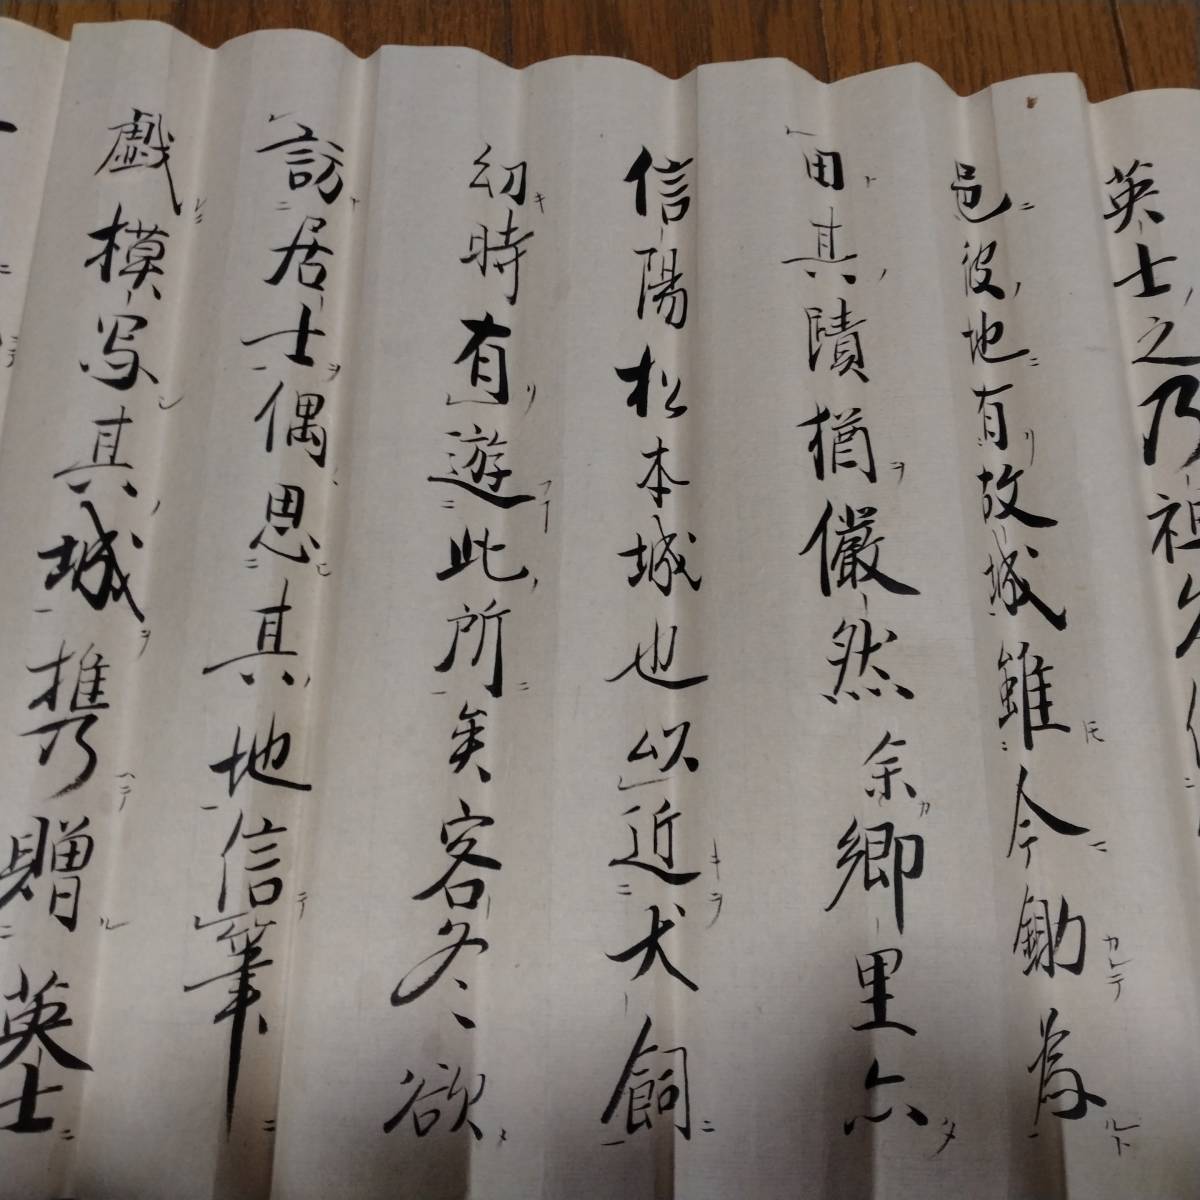 英士之乃祖
邑彼地有故城雖今鋤為
田其蹟猶儼然余郷里亦
信陽松本城也以近犬飼
幼時有遊此所矣客冬欲
訪居士偶思其地信筆
戯模写其城携贈英士